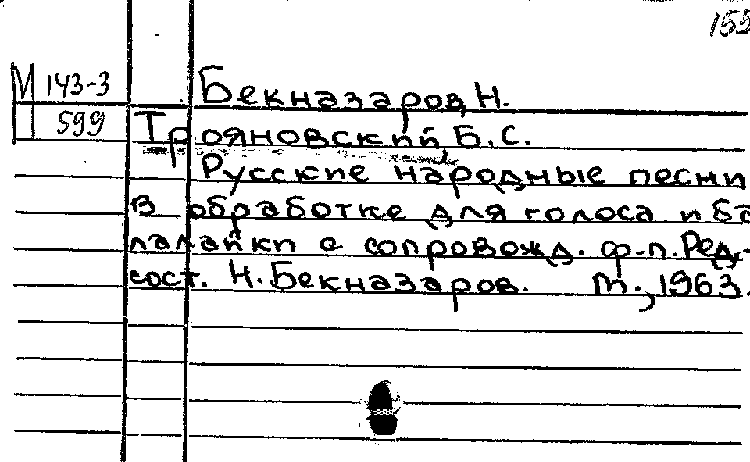 155
М 143-3
599
Бекназаров, Н.
Трояновский, Б. С.
Русские народные песни
в обработке для голоса и ба
лалайки с сопровожд. ф-п. Ред.-
сост. Н. Бекназаров. М., 1963.